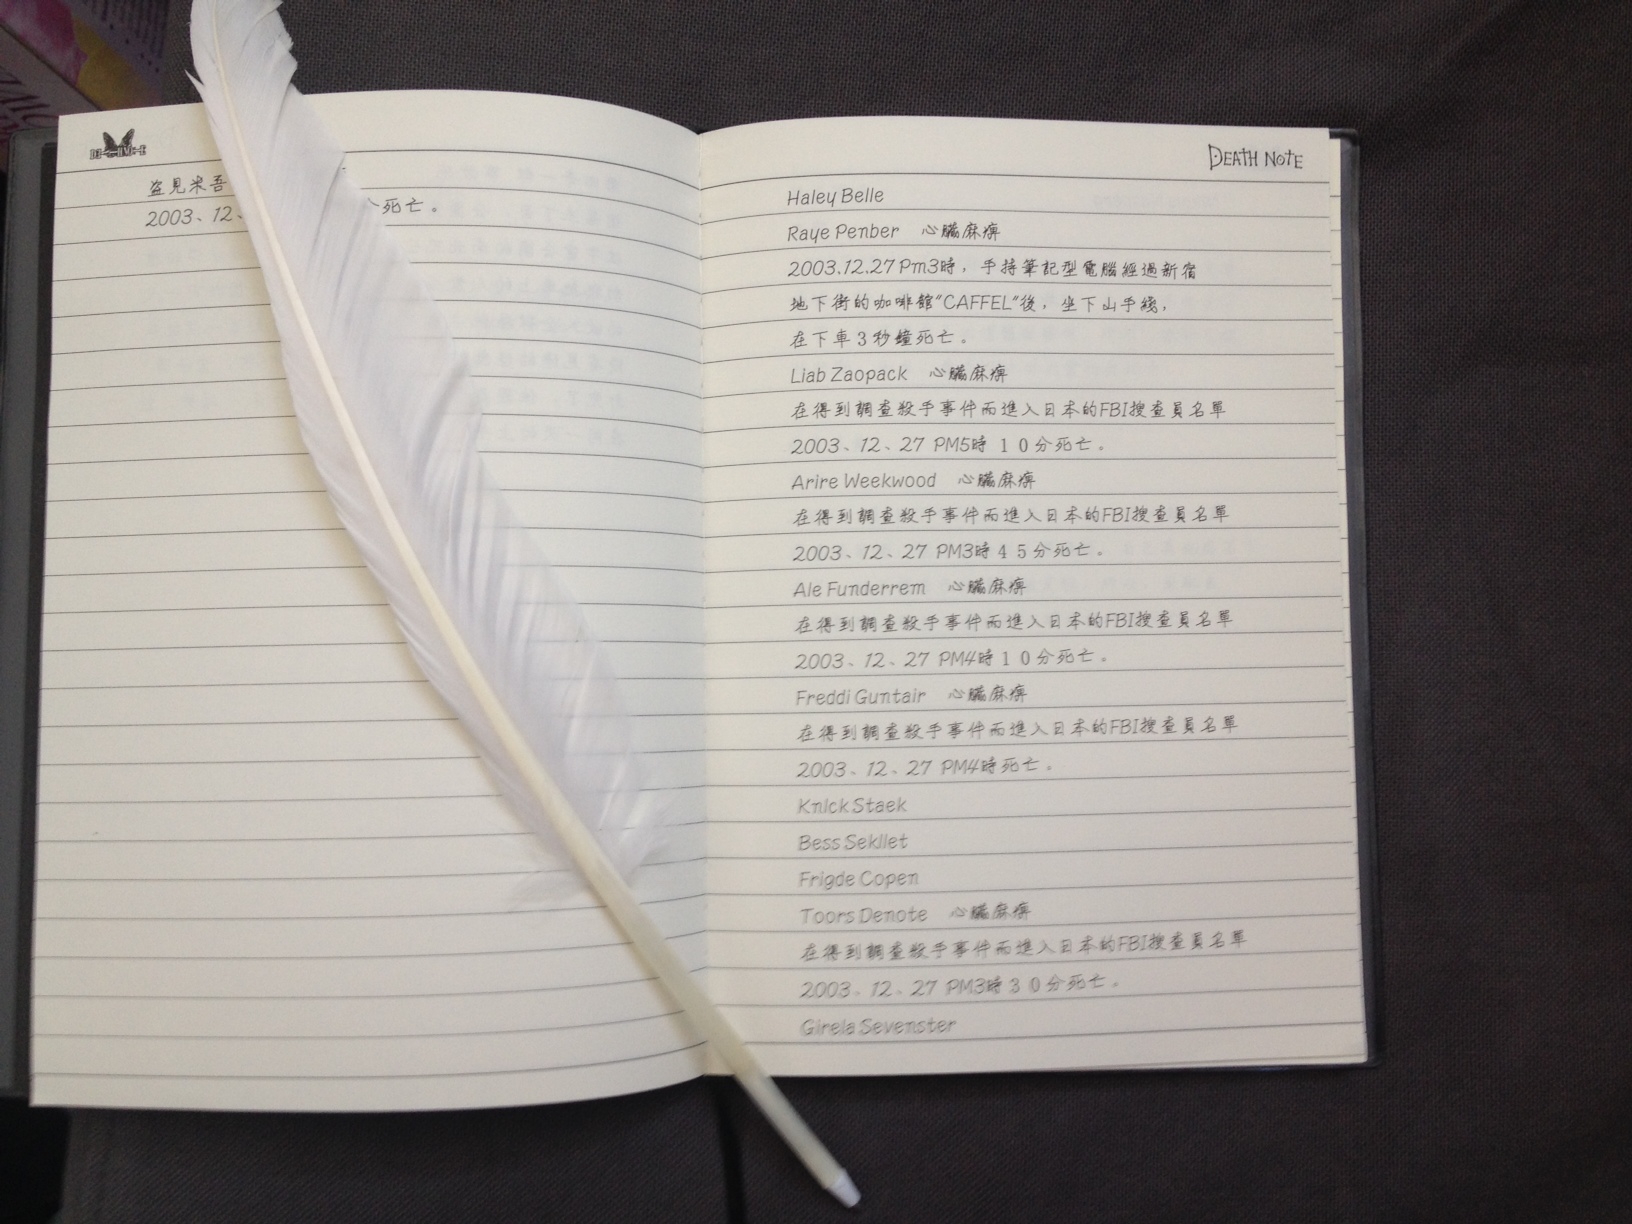 盗見米吾
2003、12、
死亡。
DEATH NOTE
Haley Belle
Raye Penber 心臟麻痺
2003.12.27 Pm3時，手持筆記型電腦經過新宿
地下街的咖啡館"CAFFEL"後，坐下山手綫，
在下車3秒鐘死亡。
Liab Zaopack 心臟麻痺
在得到調查殺手事件而進入日本的FBI搜查員名單
2003、12、27 PM5時10分死亡。
Arire Weekwood 心臟麻痺
在得到調查殺手事件而進入日本的FBI搜查員名單
2003、12、27 PM3時45分死亡。
Ale Funderrem 心臟麻痺
在得到調查殺手事件而進入日本的FBI搜查員名單
2003、12、27 PM4時10分死亡。
Freddi Guntair 心臟麻痺
在得到調查殺手事件而進入日本的FBI搜查員名單
2003、12、27 PM4時死亡。
Knick Staek
Bess Sekllet
Frigde Copen
Toors Denote 心臟麻痺
在得到調查殺手事件而進入日本的FBI搜查員名單
2003、12、27 PM3時30分死亡。
Girela Sevenster